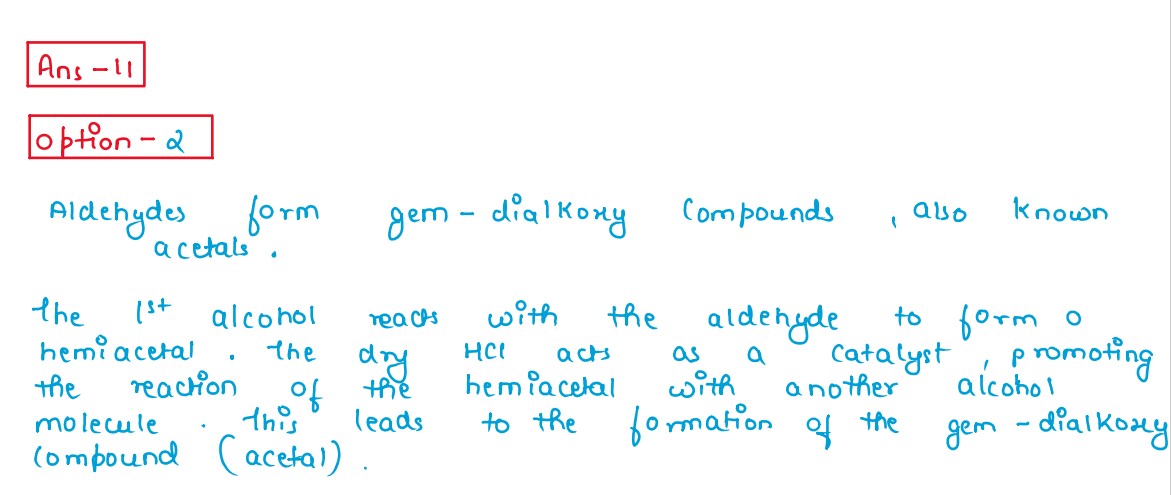 Ans - 11
option - 2
Aldehydes form gem - dialkoxy Compounds , also known
acetals .
The 1st alcohol reacts with the aldehyde to form o
hemiacetal . The dry HCl acts as a catalyst , promoting
the reaction of the hemiacetal with another alcohol
molecule . This leads to the formation of the gem - dialkoxy
Compound (acetal) .